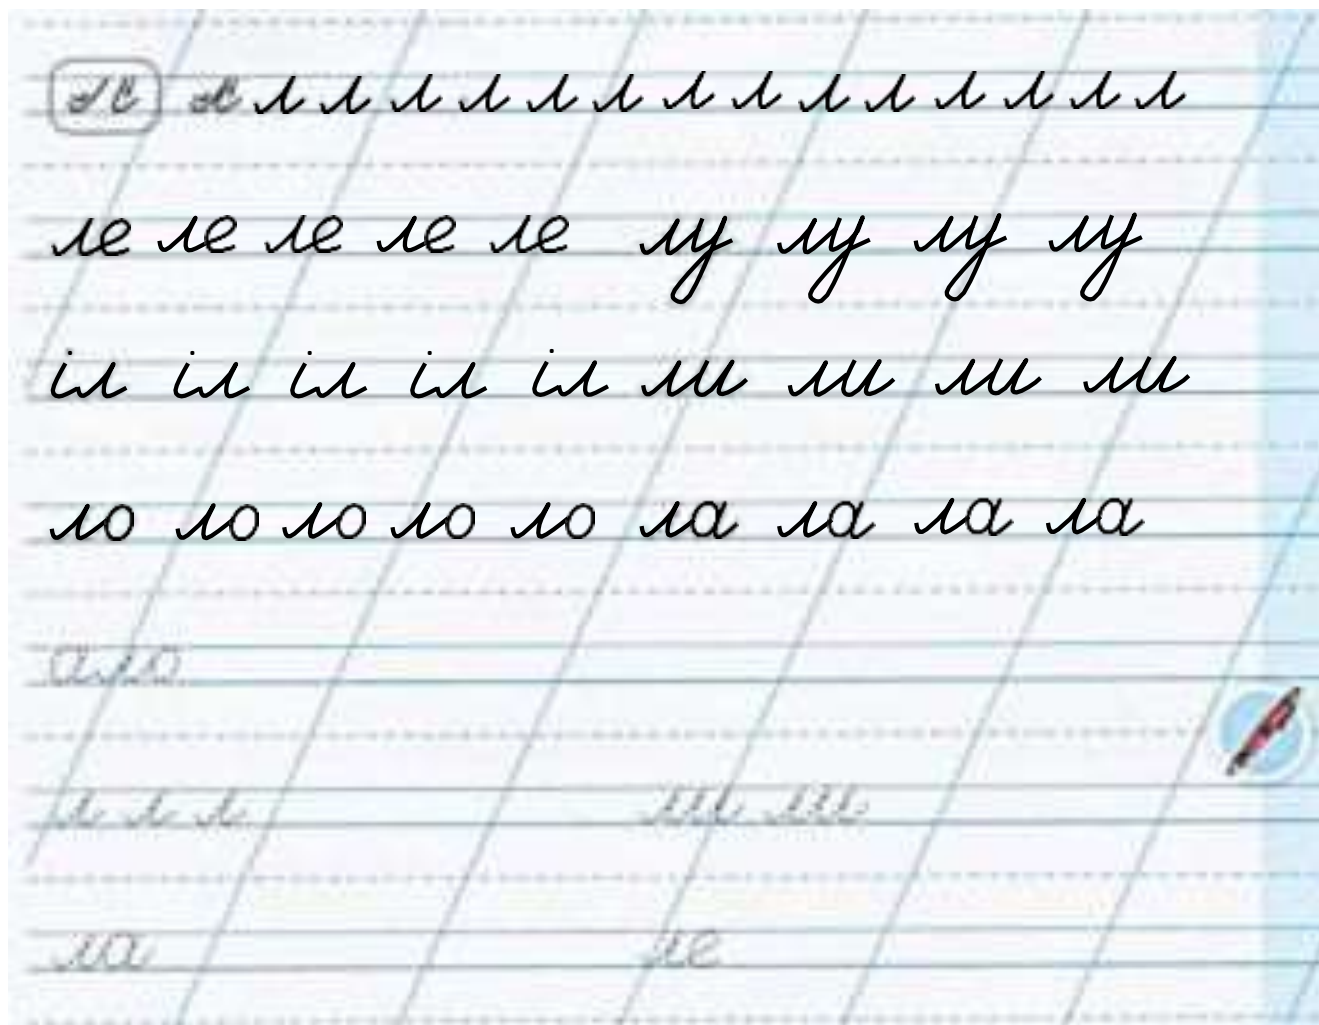 л л л л л л л л л л л л л л
ле ле ле ле ле лу лу лу лу
іл іл іл іл іл ли ли ли ли
ло ло ло ло ло ла ла ла ла
л л л ли ли
ла ле